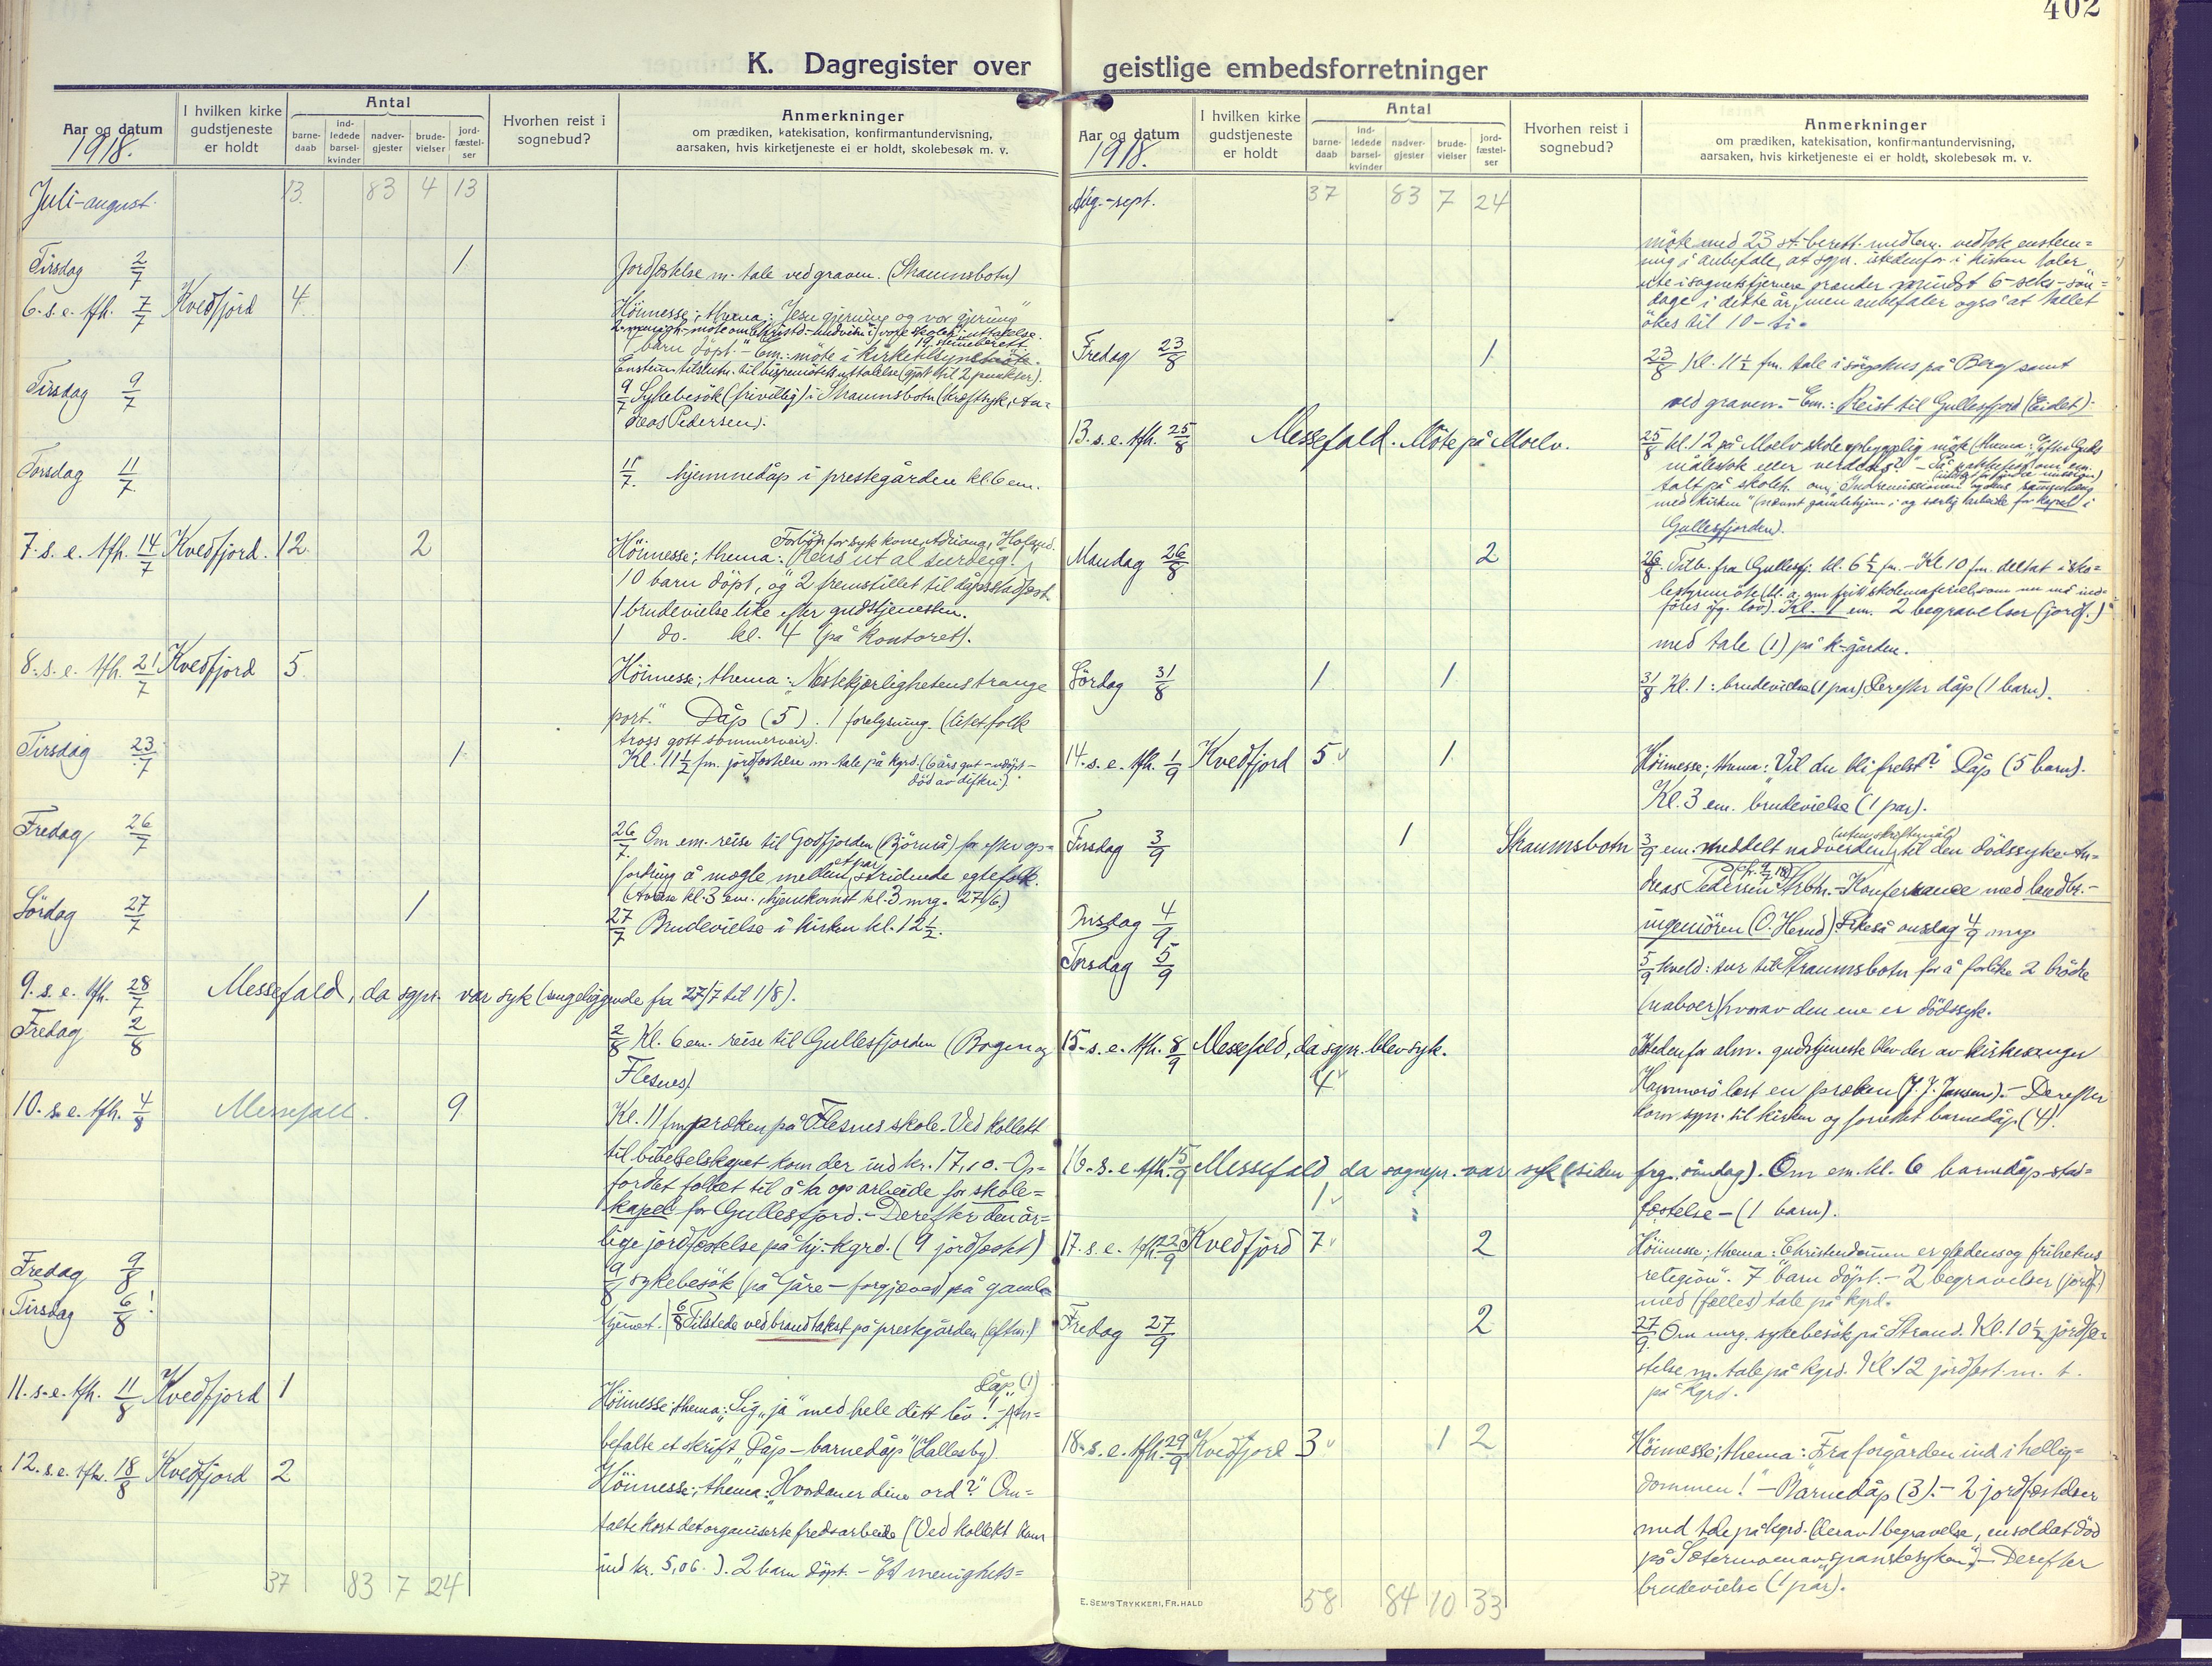 402
K. Dagregister over geistlige embedsforretninger
Aar og datum
1918.
I hvilken kirke gudstjeneste er holdt
Antal
barne-daab
ind-ledede barsel-kvinder
nadver-gjester
brude-vielser
jord-fæstel-ser
Hvorhen reist i sognebud?
Anmerkninger
om prædiken, katekisation, konfirmantundervisning,
aarsaken, hvis kirketjeneste ei er holdt, skolebesøk m. v.
Juli-august. 13 83 4 13
Tirsdag 2/7 1 Jordfæstelse m. tale ved graven. (Straumsbotn)
6. s. e. tfh. 7/7 Kvedfjord 4 Höimesse; thema: "Jesu gjerning og vor gjerning"
barn döpt. - Em.: möte i kirketilsyn
Tirsdag 9/7
9/7 Sykebesök (frivillig) i Straumsbotn (kræftsyke An=
dreas Pedersen).
Torsdag 11/7 11/7. hjemmedåp i prestegården kl. 6 em.
7. s. e. tfh. 14/7 Kvedfjord. 12 2
Höimesse; thema: "Rens ut al surdeig!"
10 barn döpt, og 2 fremstillet til dåpsstadfæst.
1 brudevielse like efter gudstjenesten.
1 do. kl. 4 (på kontoret).
8. s. e. tfh. 21/7 Kvedfjord 5 Höimesse; thema: "Næstekjærlighetens trange
port." Dåp (5). 1 forlysning. (litet folk
tross gott sommerveir).
Tirsdag 23/7 1 Kl. 11½ fm. jordfæstelse m. tale på kgrd. (6 års gut - udöpt -
död av difteri).
Fredag 26/7 26/7. Om em. reise til Godfjorden (Björnrå) for efter op=
fordring å mægle mellem et par stridende egtefolk.
(Avreise kl. 3 em., hjemkomst kl. 3 mrg. 27/6.)
Lördag 27/7 1 27/7 Brudevielse i kirken kl. 12½.
9. s. e. tfh. 28/7 Messefald, da sgpr. var syk (sengeliggende fra 27/7 til 1/8).
Fredag 2/8 2/8 Kl. 6 em. reise til Gullesfjorden (Bogen og
Flesnes)
10. s. e. tfh. 4/8 Messefall. 9 Kl. 11 fm. præken på Flesnes skole. Ved kollekt
til bibelselskapet kom der ind kr. 17,10. - Op=
fordret folket til å ta op arbeide for skole=
kapel for Gullesfjord. - Derefter den år=
lige jordfæstelse på hj.-kgrd. (9 jordfæstet)
Fredag 9/8 9/8 sykebesök (på Gåre - forgjæves) på gamle
Tirsdag 6/8! hjemet. | 6/8 Tilstede ved brandtakst på prestegården (eftm.)
11. s. e. tfh. 11/8 Kvedfjord 1 Dåp (1)
Höimesse; thema: "Sig "ja" med hele ditt liv! - An=
befalte et skrift "Dåp - barnedåp" (Hallesby).
12. s. e. tfh. 18/8 Kvedfjord 2 Höimesse; thema: "Hvordan er dine ord?" Om=
talte kort det organiserte fredsarbeide (Ved kollekt kom
ind kr. 5,06.). 2 barn döpt. - Et menighets=
37 83 7 24
Aar og datum
1918.
I hvilken kirke gudstjeneste er holdt
Antal
barne-daab
ind-ledede barsel-kvinder
nadver-gjester
brude-vielser
jord-fæstel-ser
Hvorhen reist i sognebud?
Anmerkninger
om prædiken, katekisation, konfirmantundervisning,
aarsaken, hvis kirketjeneste ei er holdt, skolebesøk m. v.
Aug.-sept. 37 83 7 24
möte med 23 st.-berett. medlem. vedtok enstem=
mig å anbefale, at sgpr. istedenfor i kirken taler
ute i sognets fjernere grender mindst 6 - seks - sön=
dage i dette år, men anbefaler også at tallet
ökes til 10 - ti.
Fredag 23/8 1 23/8) kl. 11½ fm. tale i sörgehus på Berg samt
ved graven. - Em.: Reist til Gullesfjord (Eidet).
13. s. e. tfh. 25/8 Messefald. Möte på Moelv.
25/8 kl. 12 på Moelv skole opbyggelig möte (thema: "Efter Guds
målestok eller verdens?"
talt på skoleh. om "Indremissionen
med kirken" (nævnt gamlehjem; og særlig arbeide for kapel i
Gullesfjorden).
Mandag 26/8 2 26/8. Tilb. fra Gullesfj. kl. 6½ fm. - Kl. 10 fm. deltat i sko=
lestyremöte (bl. a. om fritt skolemateriel, som nu må ind=
föres ifg. lov). Kl. 1 em. 2 begravelser (jordf.)
med tale (1) på k-gården.
Lördag 31/8 1 1 31/8 Kl. 1: brudevielse (1 par) Derefter dåp (1 barn).
14. s. e. tfh. 1/9 Kvedfjord 5 1 Höimesse; thema: "Vil du bli frelst?" Dåp (5 barn).
Kl. 3 em. brudevielse (1 par).
Tirsdag 3/9 1 Straumsbotn (uten skriftemål)
3/9 em. meddelt nadverden til den dödssyke An=
dreas Pedersen Strbtn. - Konferanse med landbr.-
Onsdag 4/9 ingeniören (O. Hernd). Likeså onsdag 4/9 mrg.
Torsdag 5/9 5/9 kveld: tur til Straumsbotn for å forlike 2 brödre
(naboer) hvorav den ene er dödssyk.
15. s. e. tfh. 8/9 Messefald, da sgpr. blev syk. Istedenfor alm. gudstjeneste blev der av kirkesanger
4 Hammerö læst en præken (J. J. Jansen). - Derefter
kom sgpr. til kirken og forrettet barnedåp (4).
16. s. e. tfh. 15/9 Messefald, da sognepr. var syk (siden frg. söndag). Om em. kl. 6 barnedåp-stad-
1 fæstelse - (1 barn).
17. s. e. tfh. 22/9 Kvedfjord 7 2 Höimesse; thema: "Christendommen er glædens og frihetens
religion". 7 barn döpt. - 2 begravelser (jordf.)
med (fælles) tale på kgrd.
Fredag 27/9 2 27/9. Om mrg. sykebesök på Strand. Kl. 10½ jordfæ=
stelse m. tale på kgrd. Kl. 12 jordfæst. m. t.
på kgrd.
18. s. e. tfh. 29/9 Kvedfjord 3 1 2 Höimesse; thema: "Fra forgården ind i hellig=
dommen!" - Barnedåp (3). - 2 jordfæstelser
med tale på kgrd. (derav 1 begravelse, en soldat död
på Sætermoen av "spanskesyken"). - Derefter
brudevielse (1 par).
58 84 10 33
E. SEM'S TRYKKERI, FR.HALD